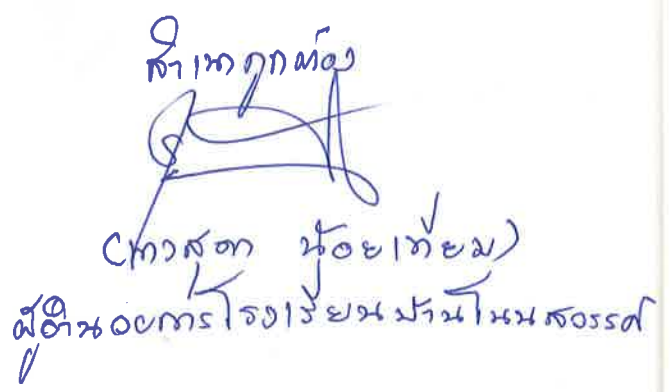 สำเนาถูกต้อง
(นางสุดา น้อยเทียม)
ผู้อำนวยการโรงเรียนบ้านโนนสวรรค์